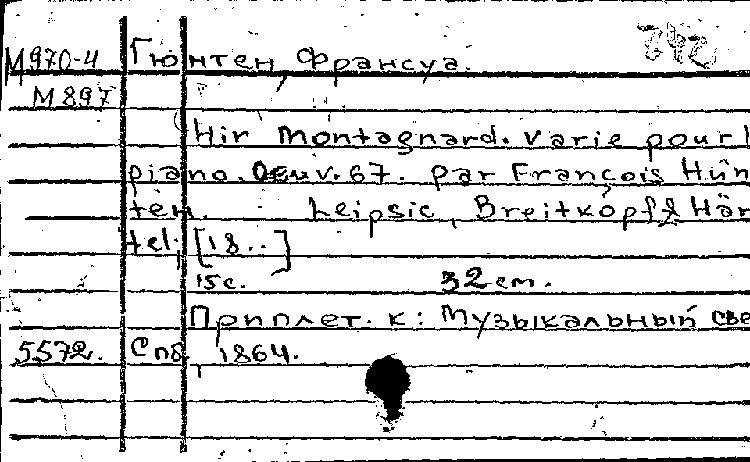 М970-4 Гюнтен, Франсуа.
М897
Hir montagnard. varie pour l
piano. Oeuv. 67. par François Hün
ten. Leipsic, Breitkopf & Här
tel, [18..]
15 с. 32 см.
Приплет. к: Музыкальный све
5572. Спб, 1864.